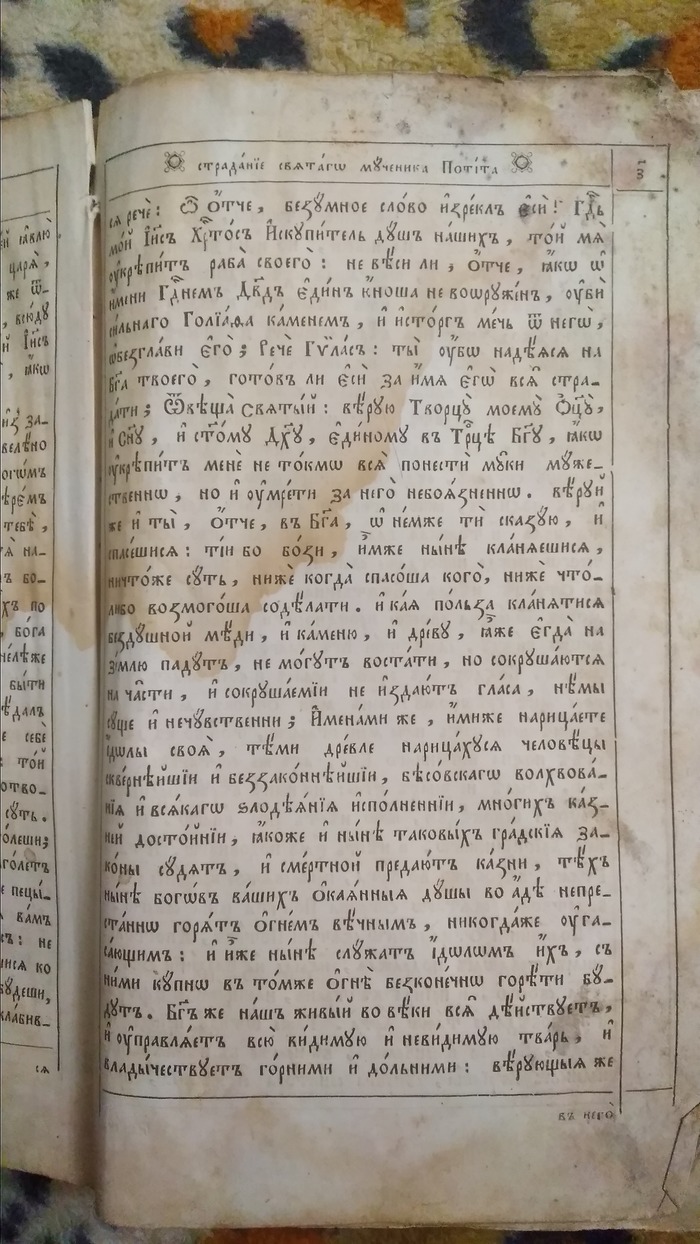 страда́нїе свѧта́гѡ мꙋ́ченика Поті́та
з҃
сѧ речѐ: Ѽ ѻ҆́тче, безꙋ́мное сло́во и҆зре́клъ є҆сѝ! Гд҇ь
мо́й І҆и҃съ Хрⷭ҇то́съ И҆скꙋпи́тель дꙋ́шъ на́шихъ, то́й мѧ̀
ᲂу҆крѣпи́тъ раба̀ своего̀: не вѣ́си ли, ѻ҆́тче, ꙗ҆́кѡ ѡ҆
и҆́мени Гд҇немъ Дв҃дъ є҆ди́нъ ю҆́ноша не воѡрꙋже́нъ, ᲂу҆бѝ
си́льнаго Голїа́ѳа ка́менемъ, и҆ и҆сто́ргъ ме́чь ѿ негѡ̀,
ѡ҆безгла́ви є҆го̀; Речѐ Гѵла́съ: ты̀ ᲂу҆́бѡ надѣ́ѧсѧ на
Бг҃а твоего̀, гото́въ ли є҆сѝ за и҆́мѧ є҆гѡ̀ всѧ̑ стра_
да́ти; Ѿвѣща̀ свѧты́й: вѣ́рꙋю Творцꙋ̀ моемꙋ̀ Ѻ҆ц҃ꙋ̀,
и҆ Сн҃ꙋ, и҆ ст҃о́мꙋ Дх҃ꙋ, є҆ди́номꙋ въ Трⷪ҇цѣ Бг҃ꙋ, ꙗ҆́кѡ
ᲂу҆крѣпи́тъ менѐ не то́кмѡ всѧ̑ понестѝ мꙋ́ки мꙋ́же_
ственнѡ, но и҆ ᲂу҆мре́ти за него̀ небоѧ́зненнѡ. вѣ́рꙋй
же и҆ ты̀, ѻ҆́тче, въ Бг҃а, ѡ҆ не́мже тѝ сказꙋ́ю, и҆
спасе́шисѧ: ті́и бо бо́зи, и҆̀мже ны́нѣ кла́нѧешисѧ,
ничто́же сꙋ́ть, нижѐ когда̀ спасо́ша кого̀, нижѐ что̀_
либо возмого́ша содѣ́лати. и҆ ка́ѧ по́льза кла́нѧтисѧ
бездꙋ́шной мѣ́ди, и҆ ка́меню, и҆ дре́вꙋ, ꙗ҆̀же є҆гда̀ на
зе́млю падꙋ́тъ, не мо́гꙋтъ воста́ти, но сокрꙋша́ютсѧ
на ча̑сти, и҆ сокрꙋша́емїи не и҆здаю́тъ гла́са, нѣ́мы
сꙋ́ще и҆ нечꙋ́вственни; И҆мена́ми же, и҆́миже нарица́ете
і҆́дѡлы своѧ̑, тѣ́ми дре́вле нарица́хꙋсѧ человѣ́цы
скверне́йшїи и҆ беззако́ннѣйшїи, бѣсо́вскагѡ волхвова́_
нїѧ и҆ всѧ́кагѡ ѕлодѣѧ́нїѧ и҆спо́лненнїи, мно́гихъ ка́з_
ней досто́йнїи, ꙗ҆́коже и҆ ны́нѣ таковы́хъ гра́дскїѧ за_
ко́ны сꙋ́дѧтъ, и҆ сме́ртной предаю́тъ ка́зни, тѣ́хъ
ны́нѣ богѡ́въ ва́шихъ ѻ҆каѧ́нныѧ дꙋ́шы во а҆́дѣ непре_
ста́ннѡ горѧ́тъ ѻ҆гне́мъ вѣ́чнымъ, никогда́же ᲂу҆га_
са́ющимъ: и҆ и҆̀же ны́нѣ слꙋ́жатъ і҆́дѡлѡмъ и҆́хъ, съ
ни́ми кꙋ́пнѡ въ то́мже ѻ҆гнѣ̀ безконе́чнѡ горѣ́ти бꙋ́_
дꙋтъ. Бг҃ъ же на́шъ живы́й во вѣ́ки всѧ̑ дѣ́йствꙋетъ,
и҆ ᲂу҆правлѧ́етъ всю̀ ви́димꙋю и҆ неви́димꙋю тва́рь, и҆
влады́чествꙋетъ го́рними и҆ до́льними: вѣ́рꙋющыѧ же
въ него̀